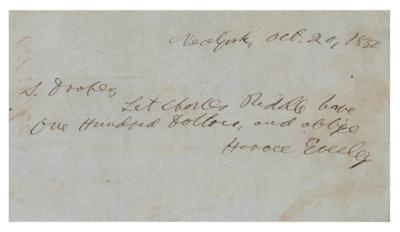 New York, Oct. 20, 185
S. Draper,
Let Charles Riddle have
One Hundred Dollars, and oblige
Horace Greeley